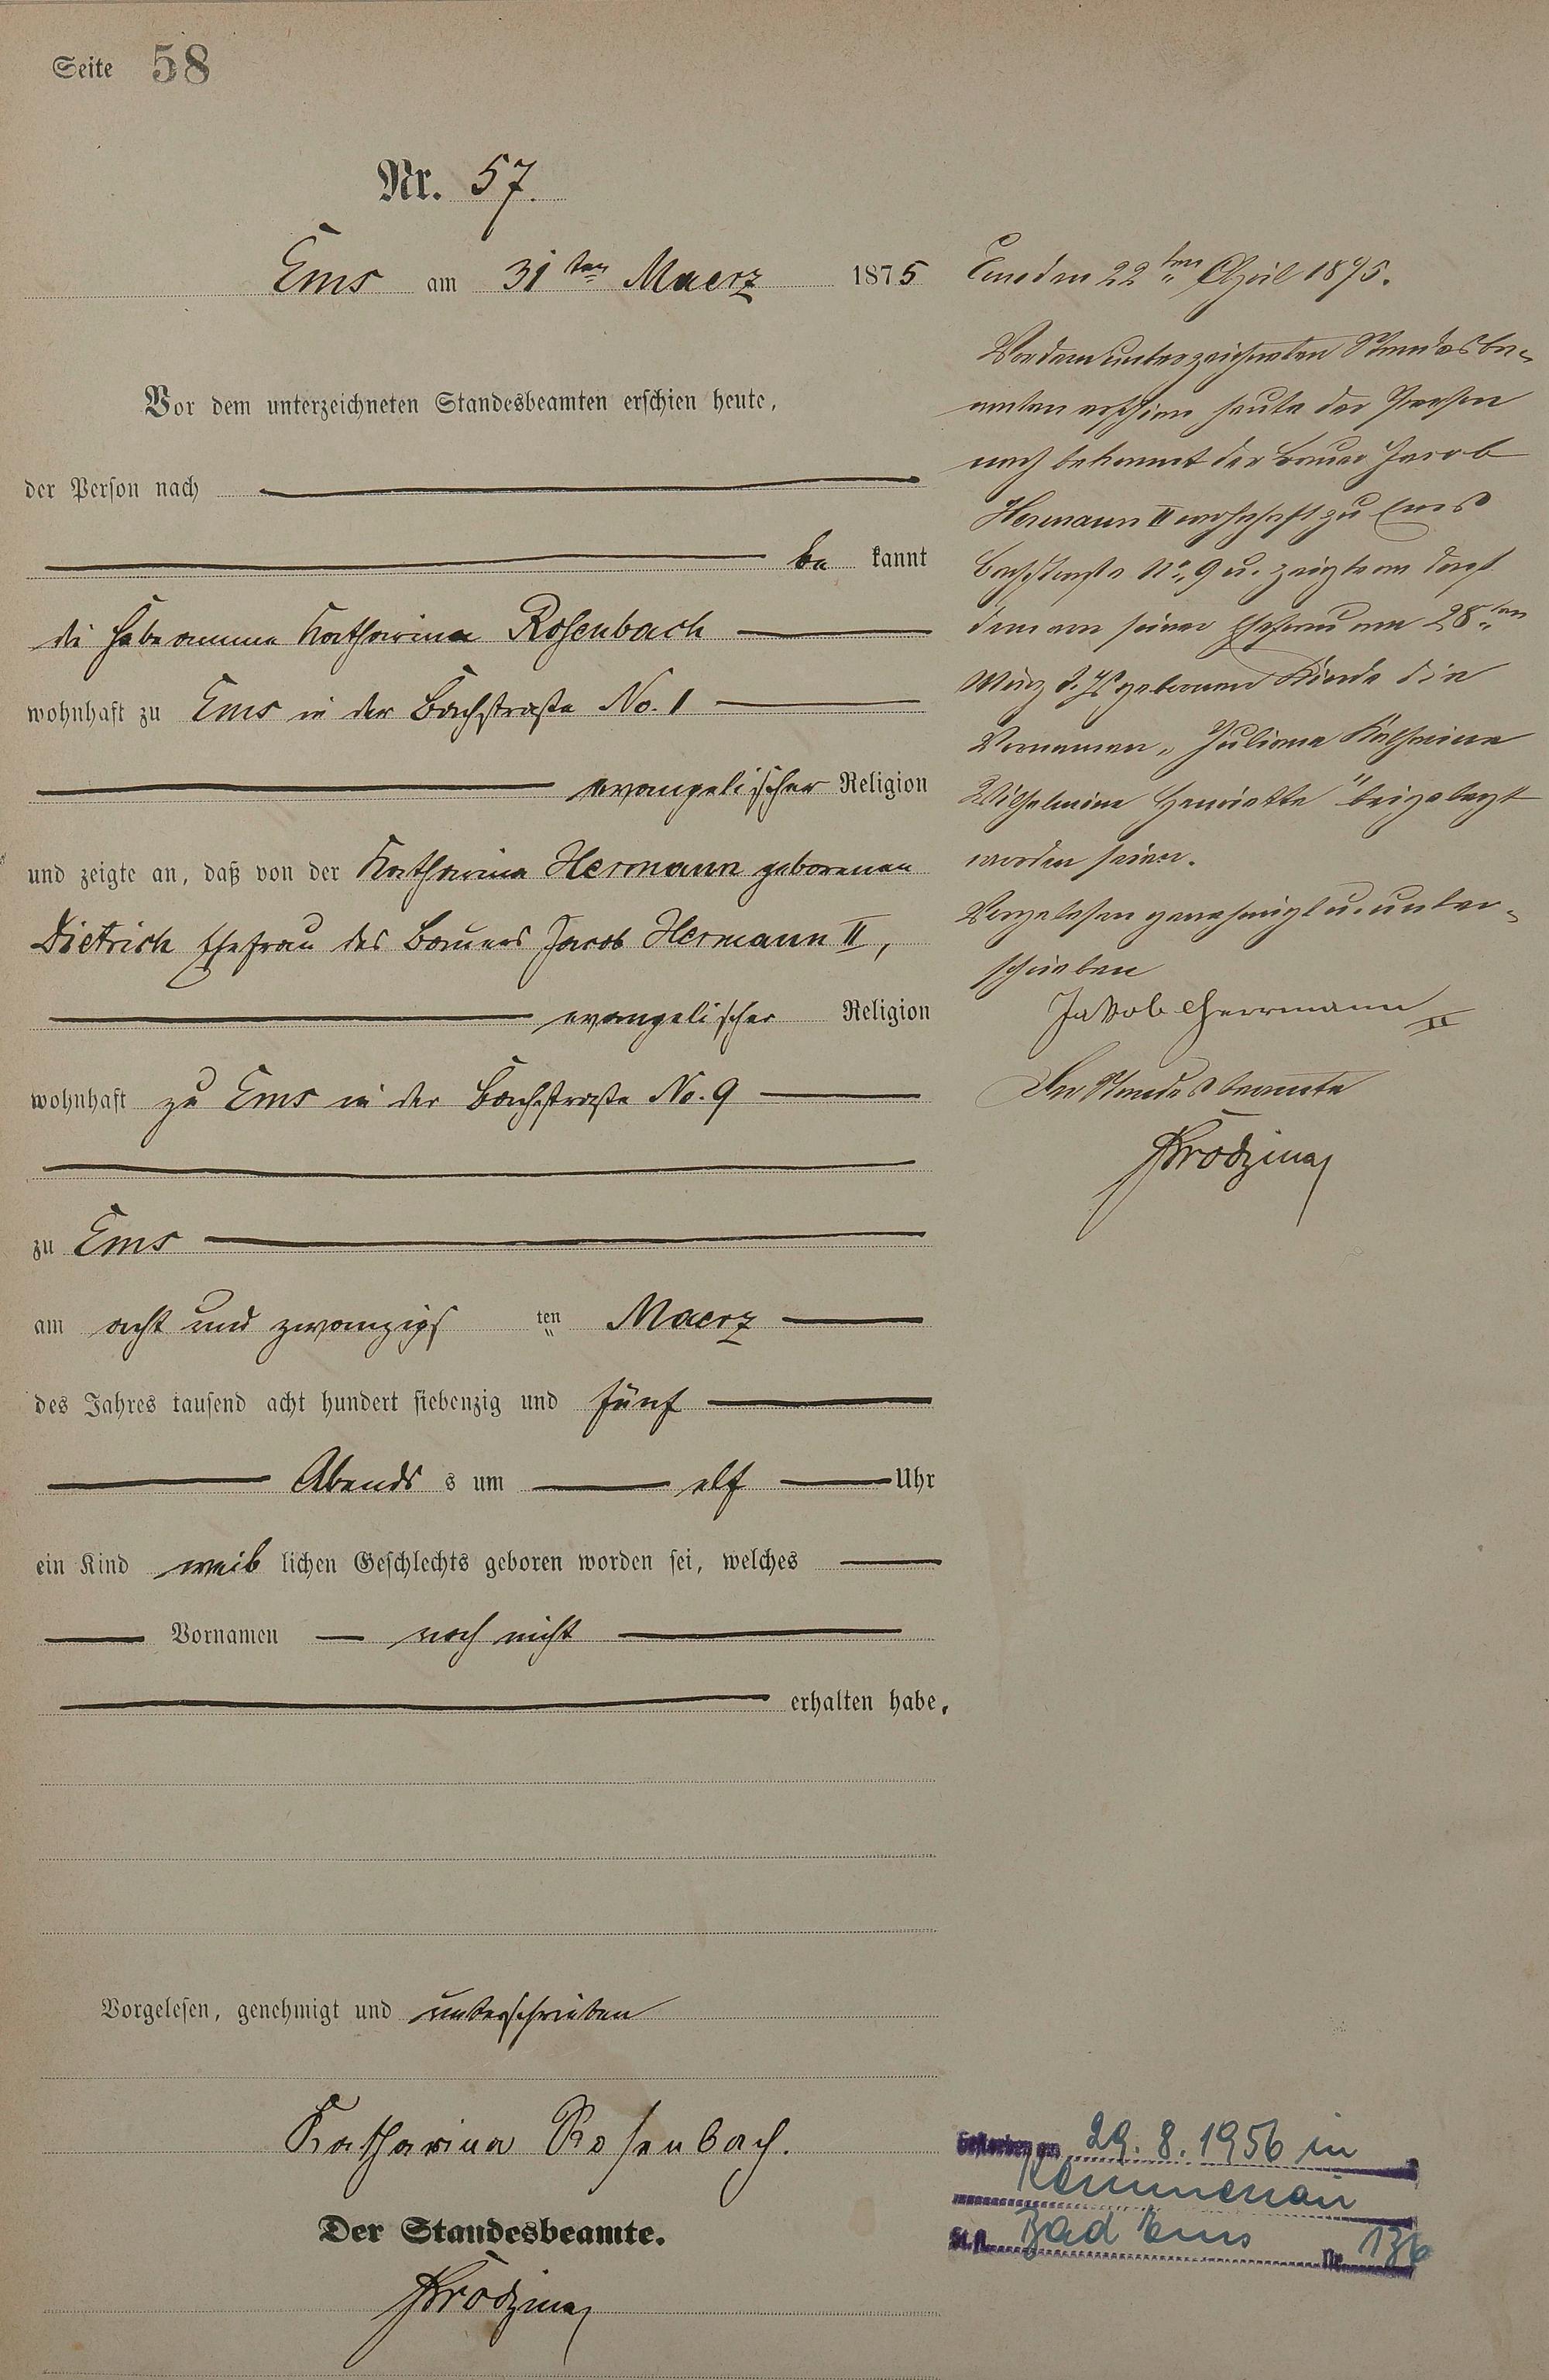 Seite 58
Nr. 57.
Ems am 31ten Maerz 1875
Vor dem unterzeichneten Standesbeamten erschien heute,
der Person nach
be kannt
die Hebeamme Katharina Rosenbach
wohnhaft zu Ems in der Bachstraße No. 1
evangelischer Religion
und zeigte an, daß von der Katharina Hermann geborenen
Dietrich Ehefrau des Bauers Jacob Hermann II,
evangelischer Religion
wohnhaft zu Ems in der Bachstraße No. 9
zu Ems
am acht und zwanzigs ten Maerz
des Jahres tausend acht hundert siebenzig und fünf
Abends s um elf Uhr
ein Kind weib lichen Geschlechts geboren worden sei, welches
Vornamen noch nicht
erhalten habe.
Vorgelesen, genehmigt und unterschrieben
Katharina Rosenbach.
Der Standesbeamte.
Ems den 22ten April 1875.
Vor dem unterzeichneten Standesbe-
amten erschien heute der Person
nach bekannt der Bauer Jacob
Hermann II wohnhaft zu Ems
Bachstraße No. 9 u. zeigte an daß
dem von seiner Ehefrau am 28ten
März d. Js geborenen Kinde die
Vornamen „Juliane Katharine
Wilhelmine Henriette" beigelegt
worden seien.
Vorgelesen genehmigt u. unter-
schrieben
Jakob Herrmann II
Der Standesbeamte
Gestorben am 29.8.1956 in
Kemmenau
St.A. Bad Ems Nr. 136